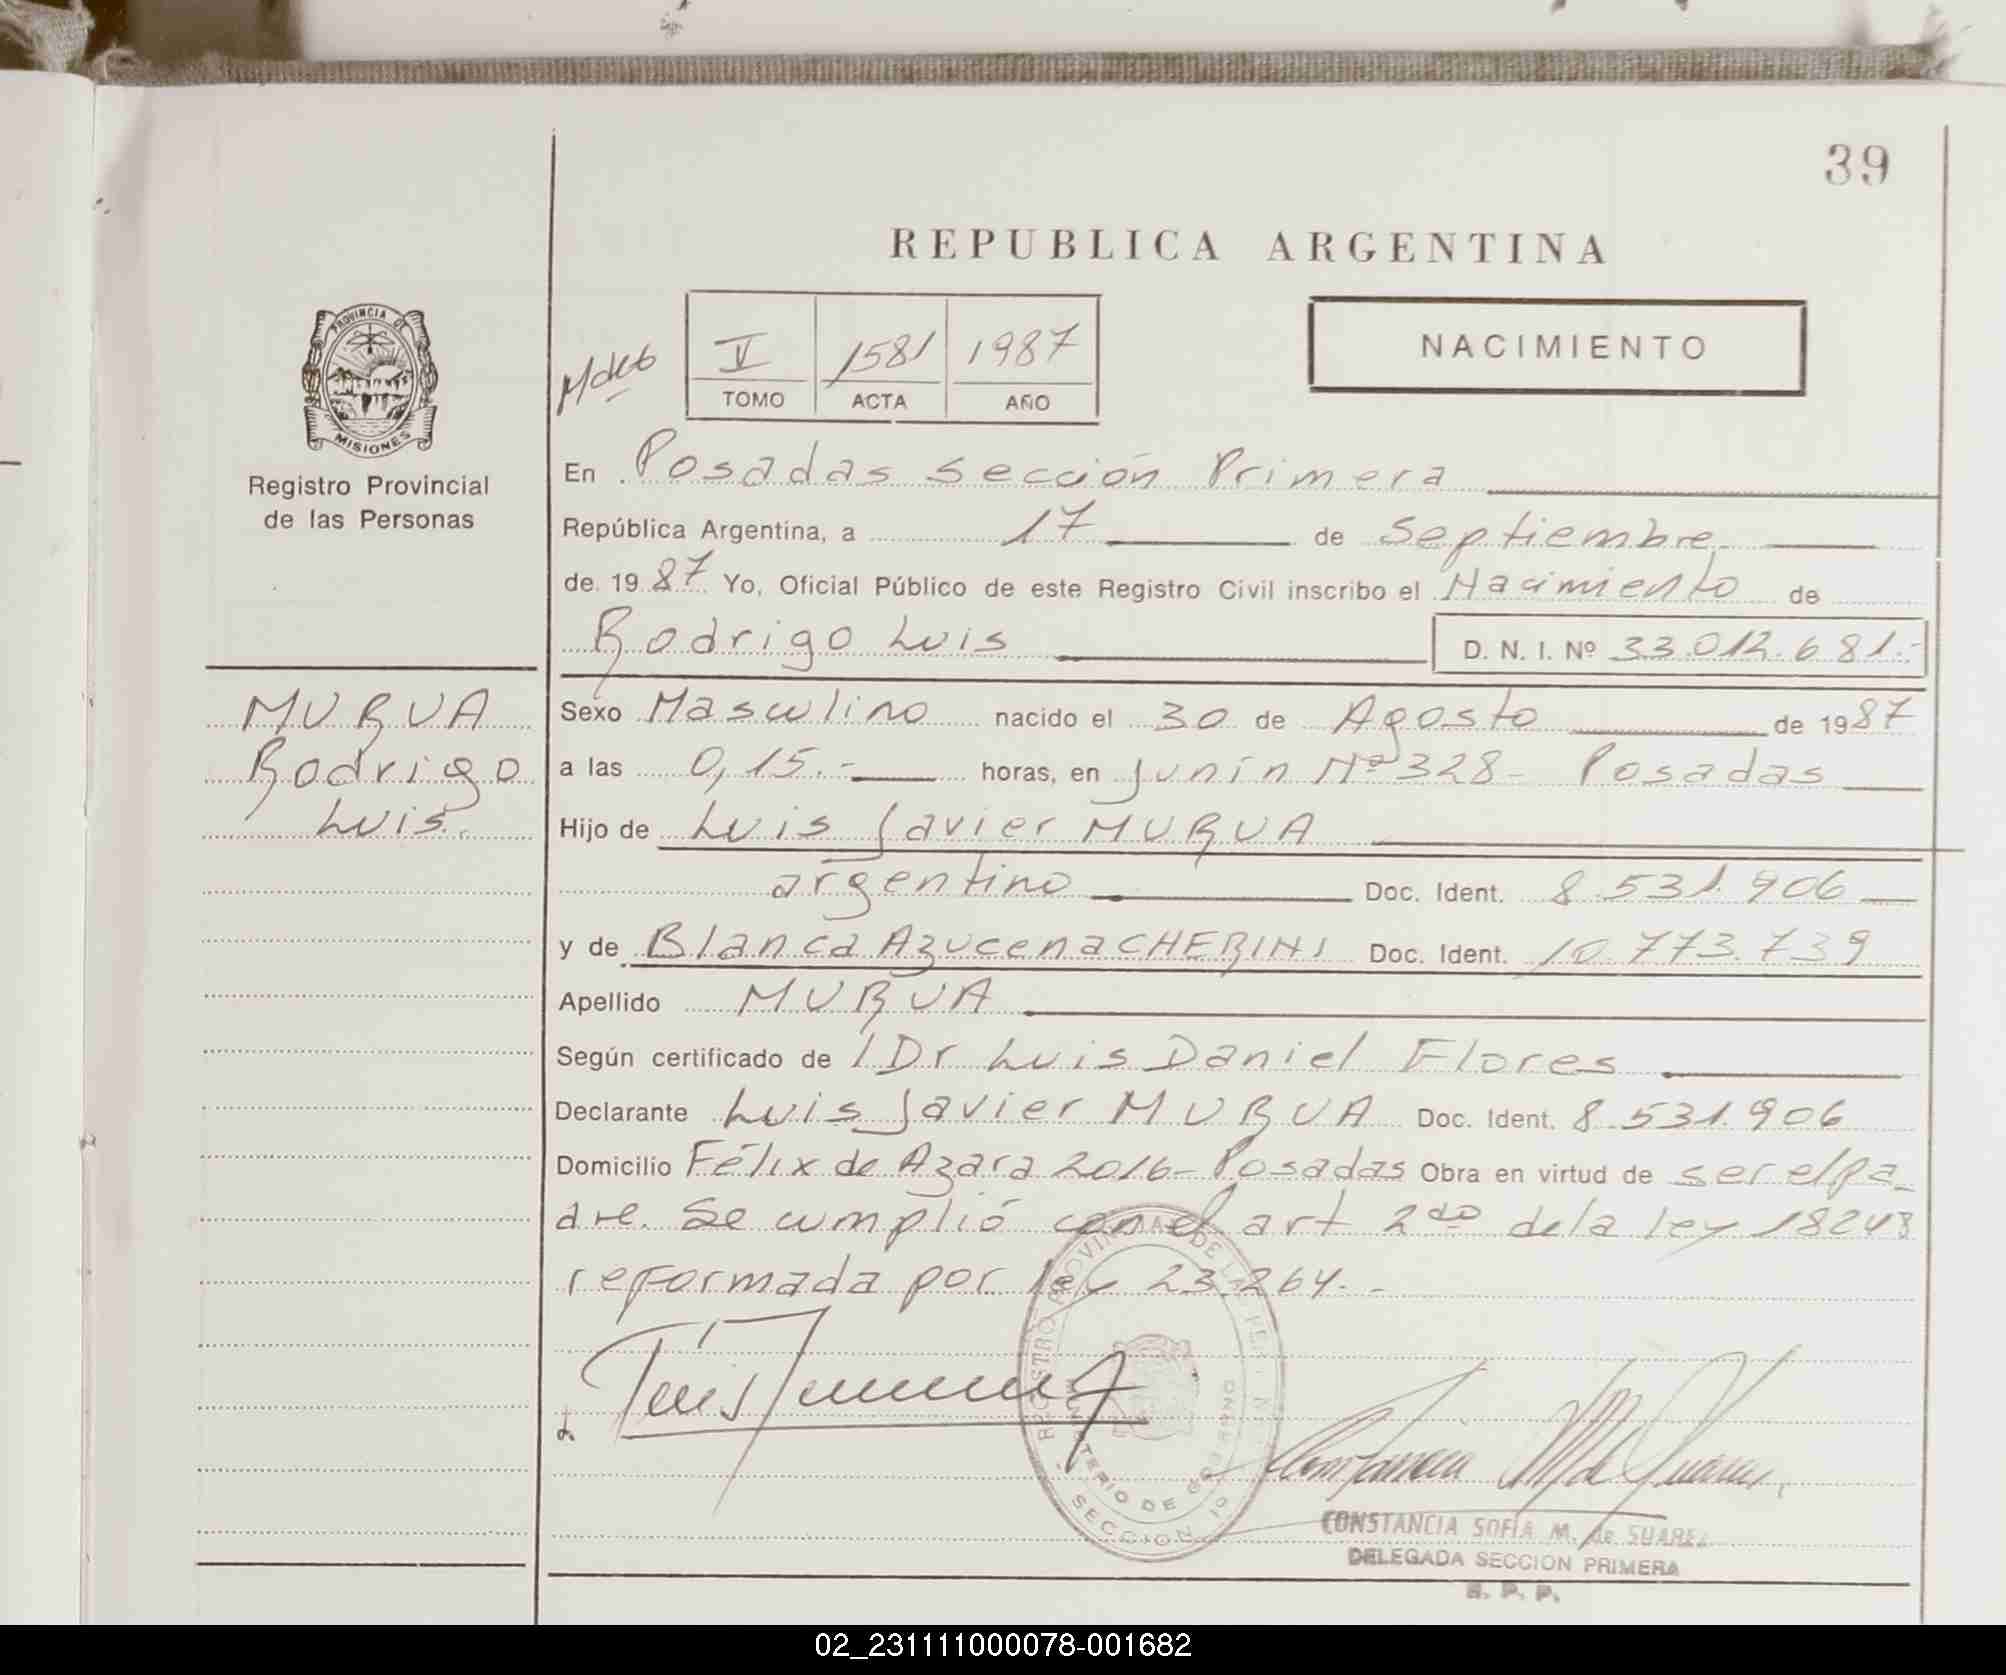 39
REPUBLICA ARGENTINA
V 1581 1987
TOMO ACTA AÑO
NACIMIENTO
PROVINCIA DE
MISIONES
Registro Provincial
de las Personas
MURUA
Rodrigo
Luis.
En Posadas Sección Primera
República Argentina, a 17 de Septiembre
de 19 87 Yo, Oficial Público de este Registro Civil inscribo el Nacimiento de
Rodrigo Luis D. N. I. Nº 33.012.681.-
Sexo Masculino nacido el 30 de Agosto de 19 87
a las 0,15.- horas, en Junín Nº 328- Posadas
Hijo de Luis Javier MURUA
argentino Doc. Ident. 8.531.906
y de Blanca Azucena CHERINI Doc. Ident. 10.773.739
Apellido MURUA
Según certificado de l Dr Luis Daniel Flores
Declarante Luis Javier MURUA Doc. Ident. 8.531.906
Domicilio Félix de Azara 2016- Posadas Obra en virtud de ser el pa_
dre. Se cumplió con el art 2do de la ley 18248
reformada por ley 23.264.-
REGISTRO PROVINCIAL DE LAS PERSONAS
MINISTERIO DE GOBIERNO
SECCION 1º
CONSTANCIA SOFIA M. de SUAREZ
DELEGADA SECCION PRIMERA
R. P. P.
02_231111000078-001682